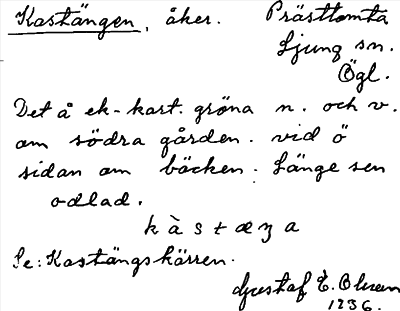 Kastängen, åker. Prästtomta
Ljung sn.
Ögl.
Det å ek-kart. gröna n. och v.
om södra gården. vid ö
sidan om bäcken. Länge sen
odlad.
k à s t æ ʒ a
Se: Kastängskärren.
Gustaf E. Olsson
1236.